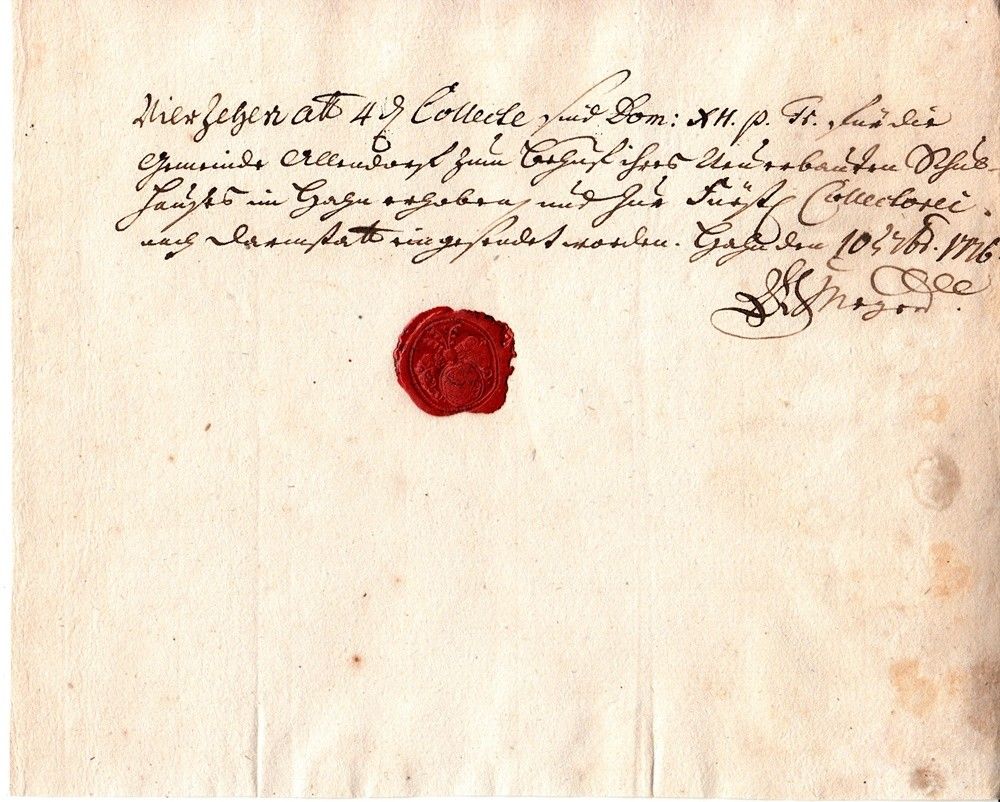 Vierzehen alb 4 ₰ Collecte sind Dom: XII. p. Tr. für die
Gemeinde Allendorf zum Behuf ihres Neuerbauten Schul-
Hauses im Hayn erhoben, und zur Fürstl Collectorei
nach Darmstatt eingesendet worden. Hayn den 10 7br. 1776.
Meyer